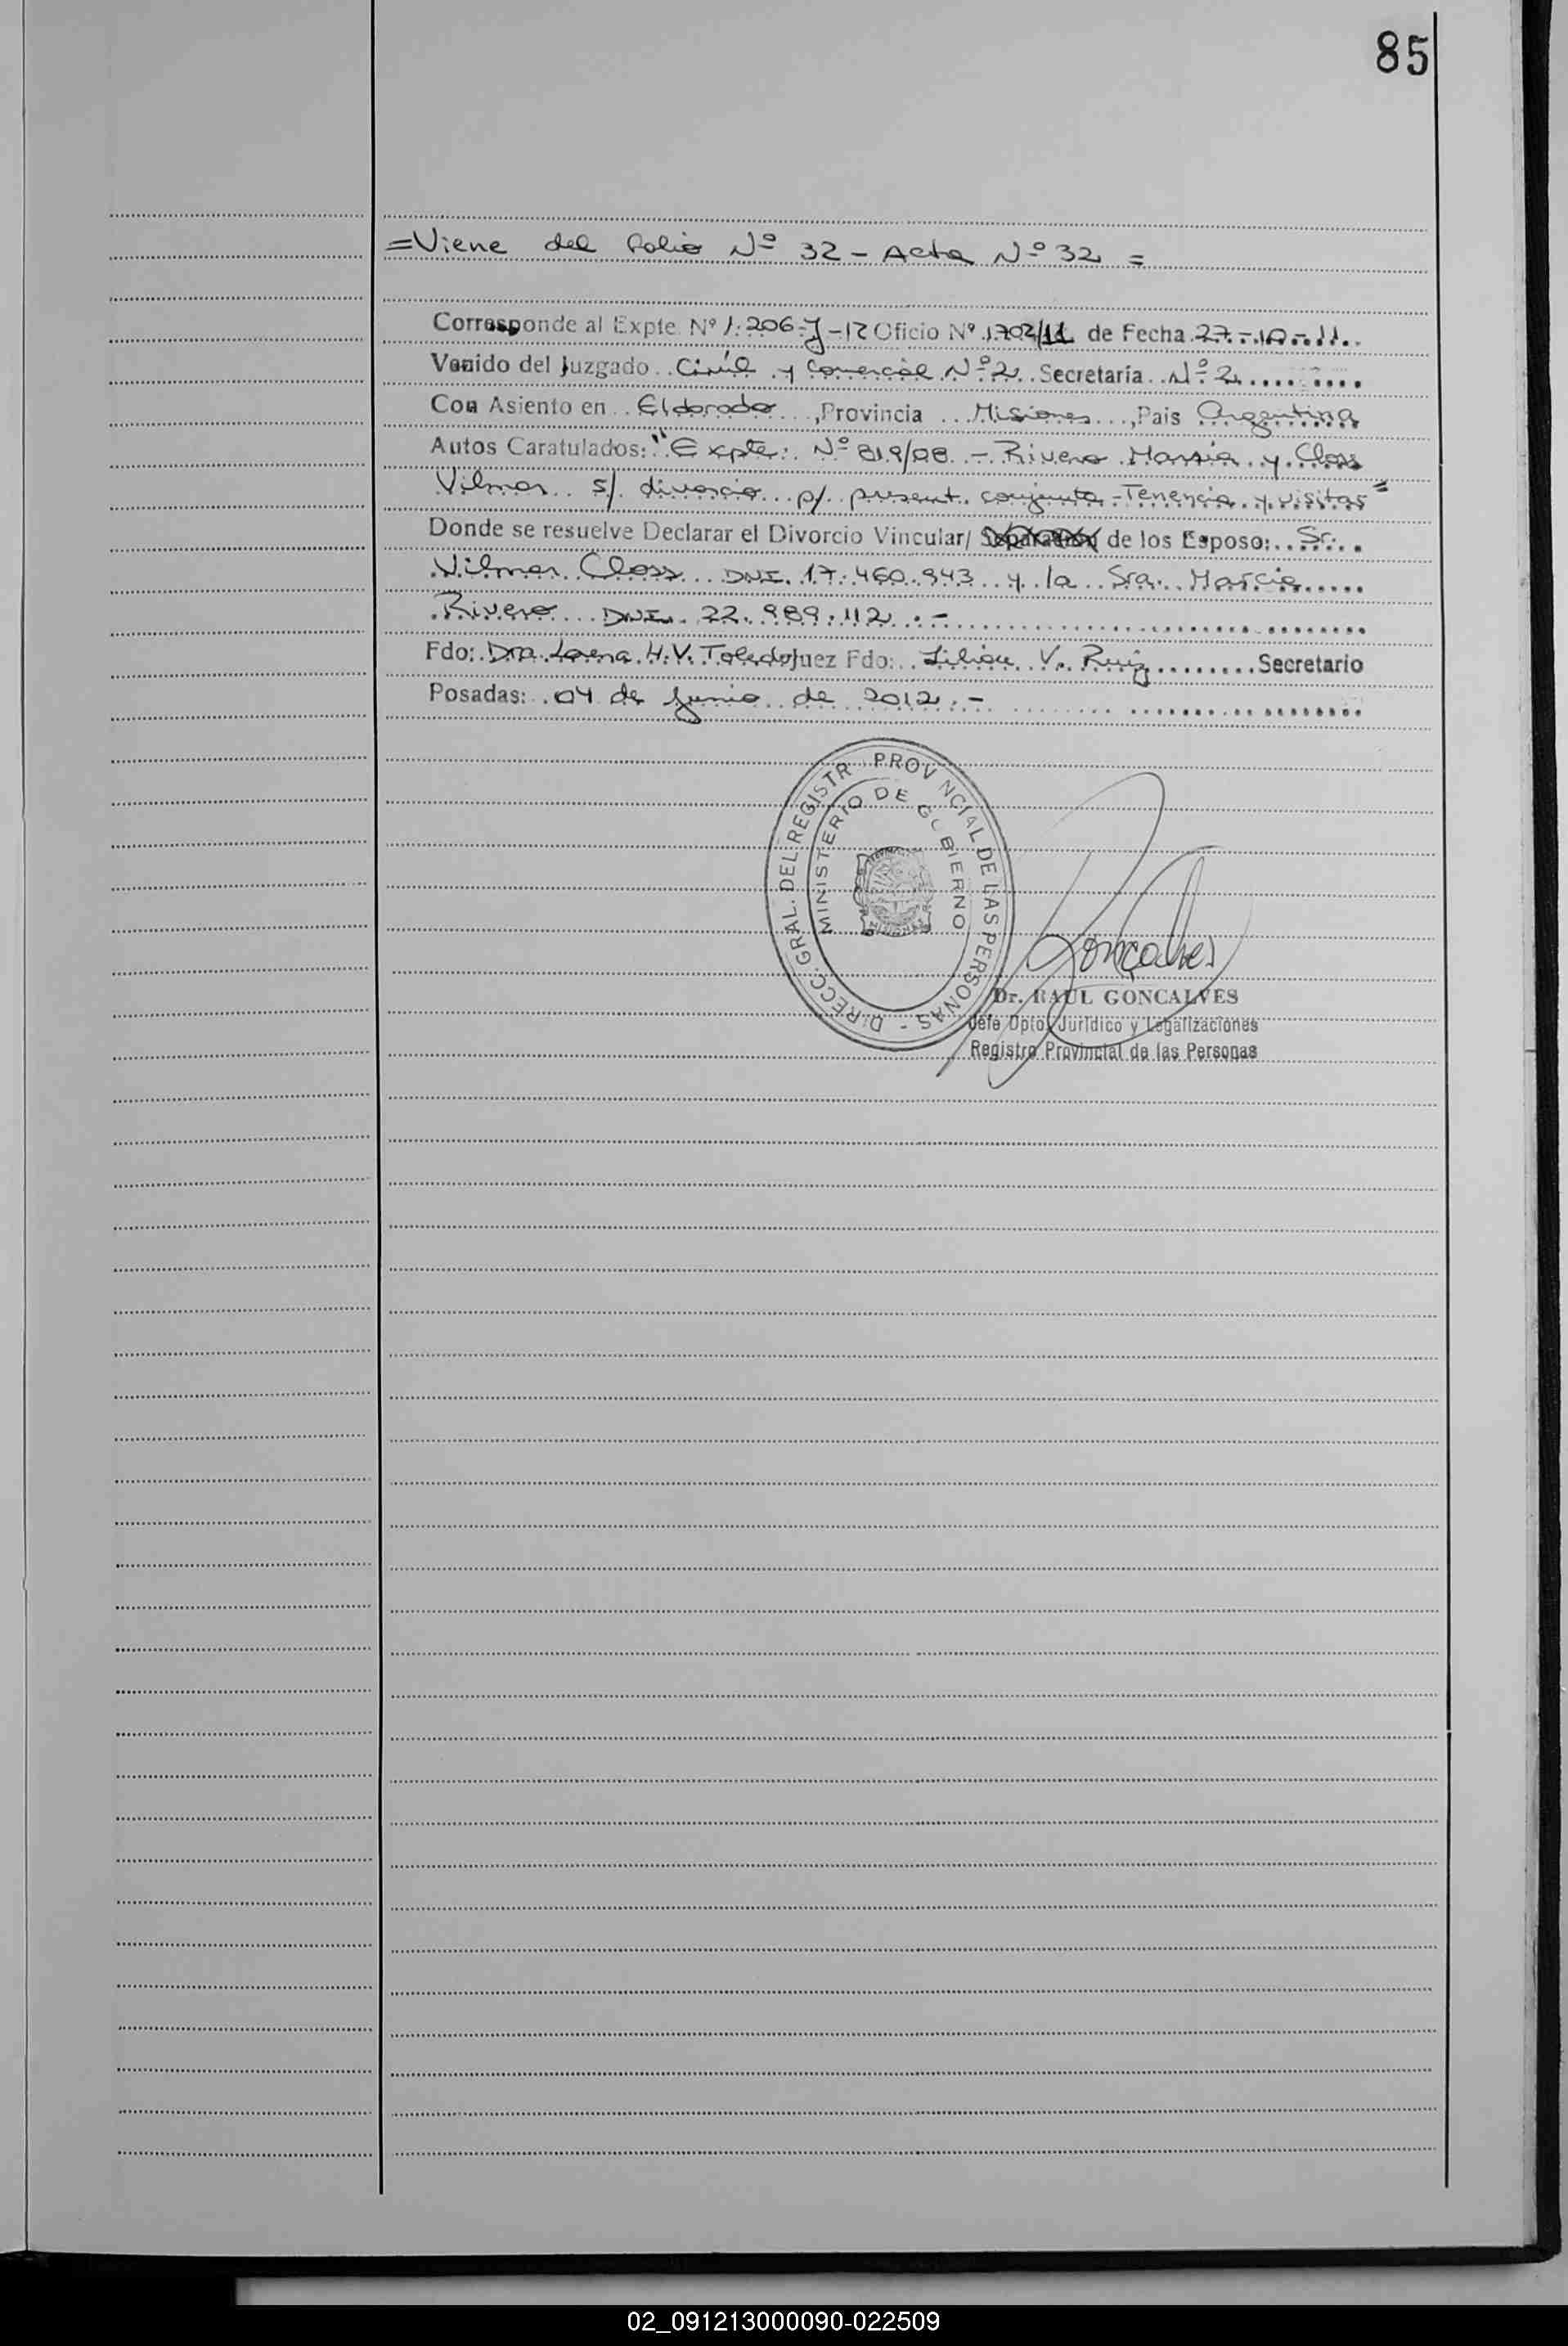 85
=Viene del folio Nº 32 - Acta Nº 32 =
Corresponde al Expte. Nº 1.206-J-12 Oficio Nº 1702/11 de Fecha 27-10-11.
Venido del Juzgado Civil y Comercial Nº 2 Secretaría Nº 2
Con Asiento en Eldorado, Provincia Misiones, Pais Argentina
Autos Caratulados: "Expte. Nº 819/08 - Rivero Marcia y Closs
Vilmar s/ divorcio p/ present. conjunta - Tenencia y visitas"
Donde se resuelve Declarar el Divorcio Vincular/ Separación de los Esposo: Sr.
Vilmar Closs DNI. 17.460.943 y la Sra. Marcia
Rivero DNI. 22.989.112.-
Fdo: Dra. H.V. Toledo Juez Fdo: Lilian V. Ruiz Secretario
Posadas: 04 de Junio de 2012.-
DIRECC. GRAL. DEL REGISTR PROVINCIAL DE LAS PERSONAS -
MINISTERIO DE GOBIERNO
Goncalves
Dr. RAUL GONCALVES
Jefe Dpto. Jurídico y Legalizaciones
Registro Provincial de las Personas
02_091213000090-022509